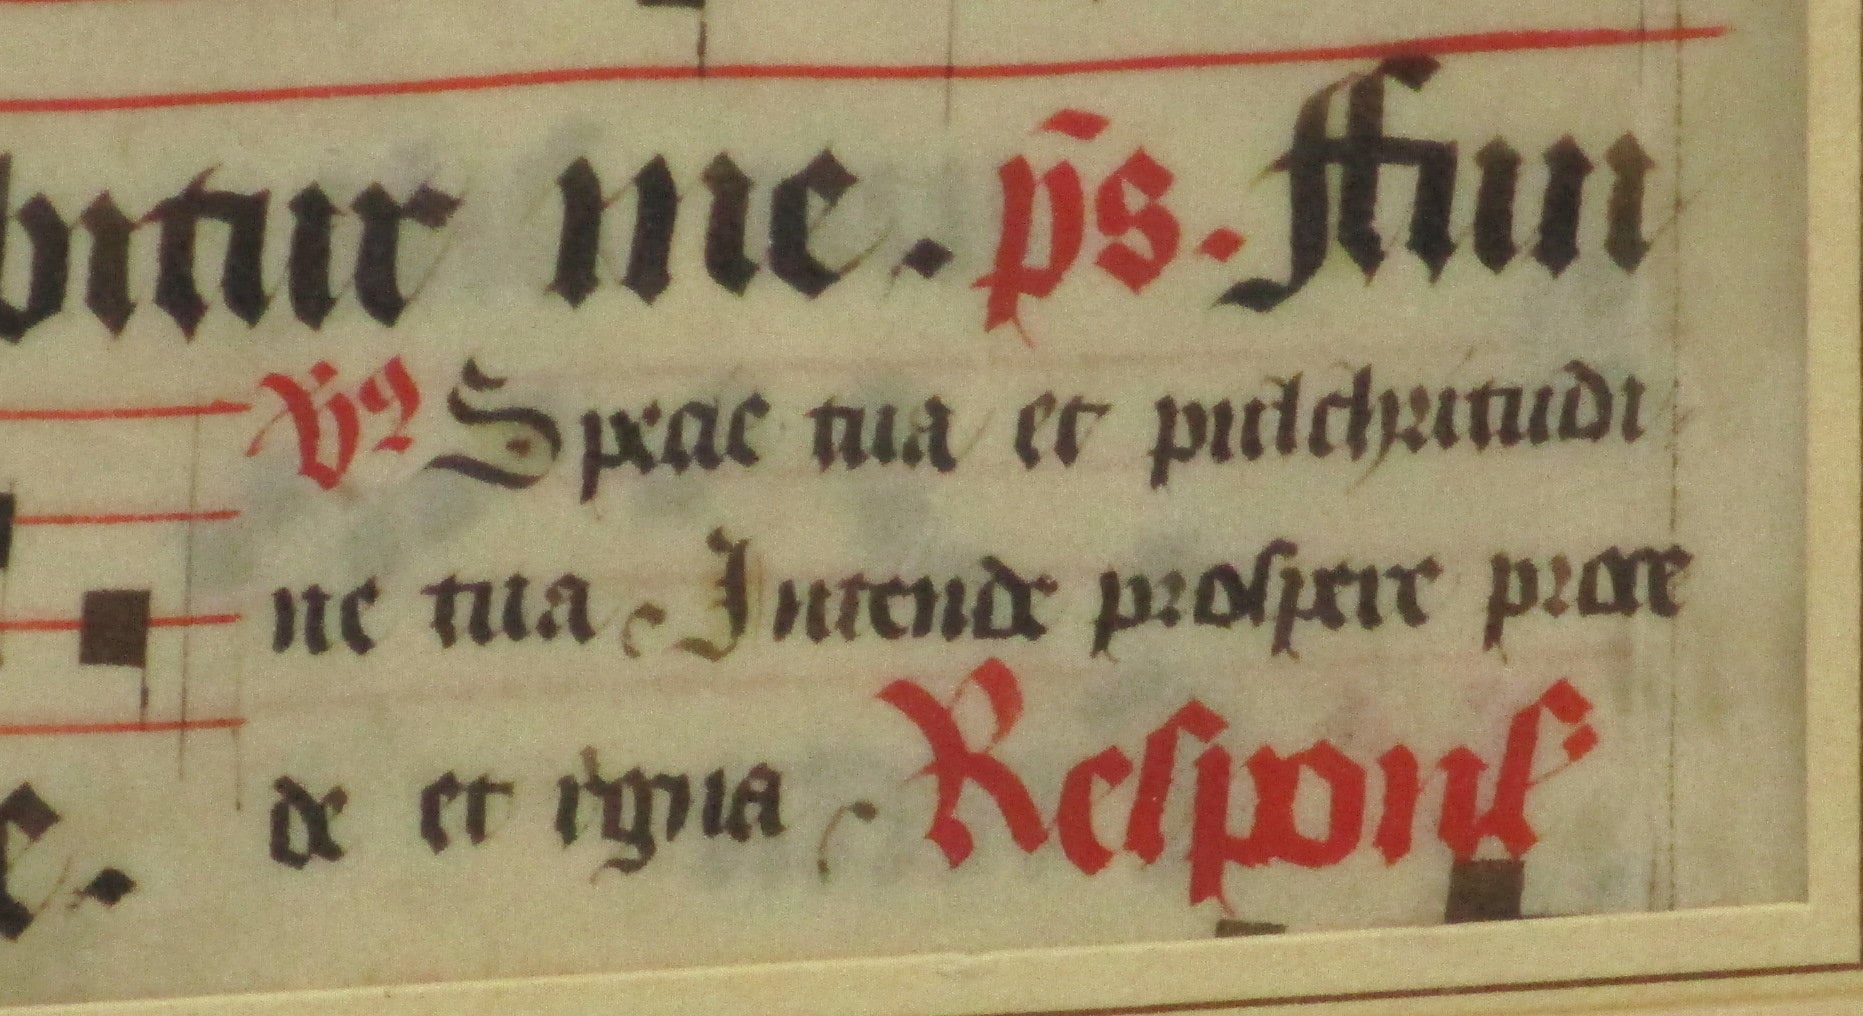 bitur me. ps. ffun
V Specie tua et pulchritudi
ne tua. Intende prospere proce
de et regna. Respons
e.